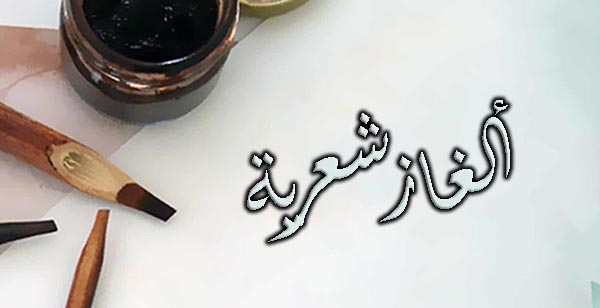 ألغاز شعرية